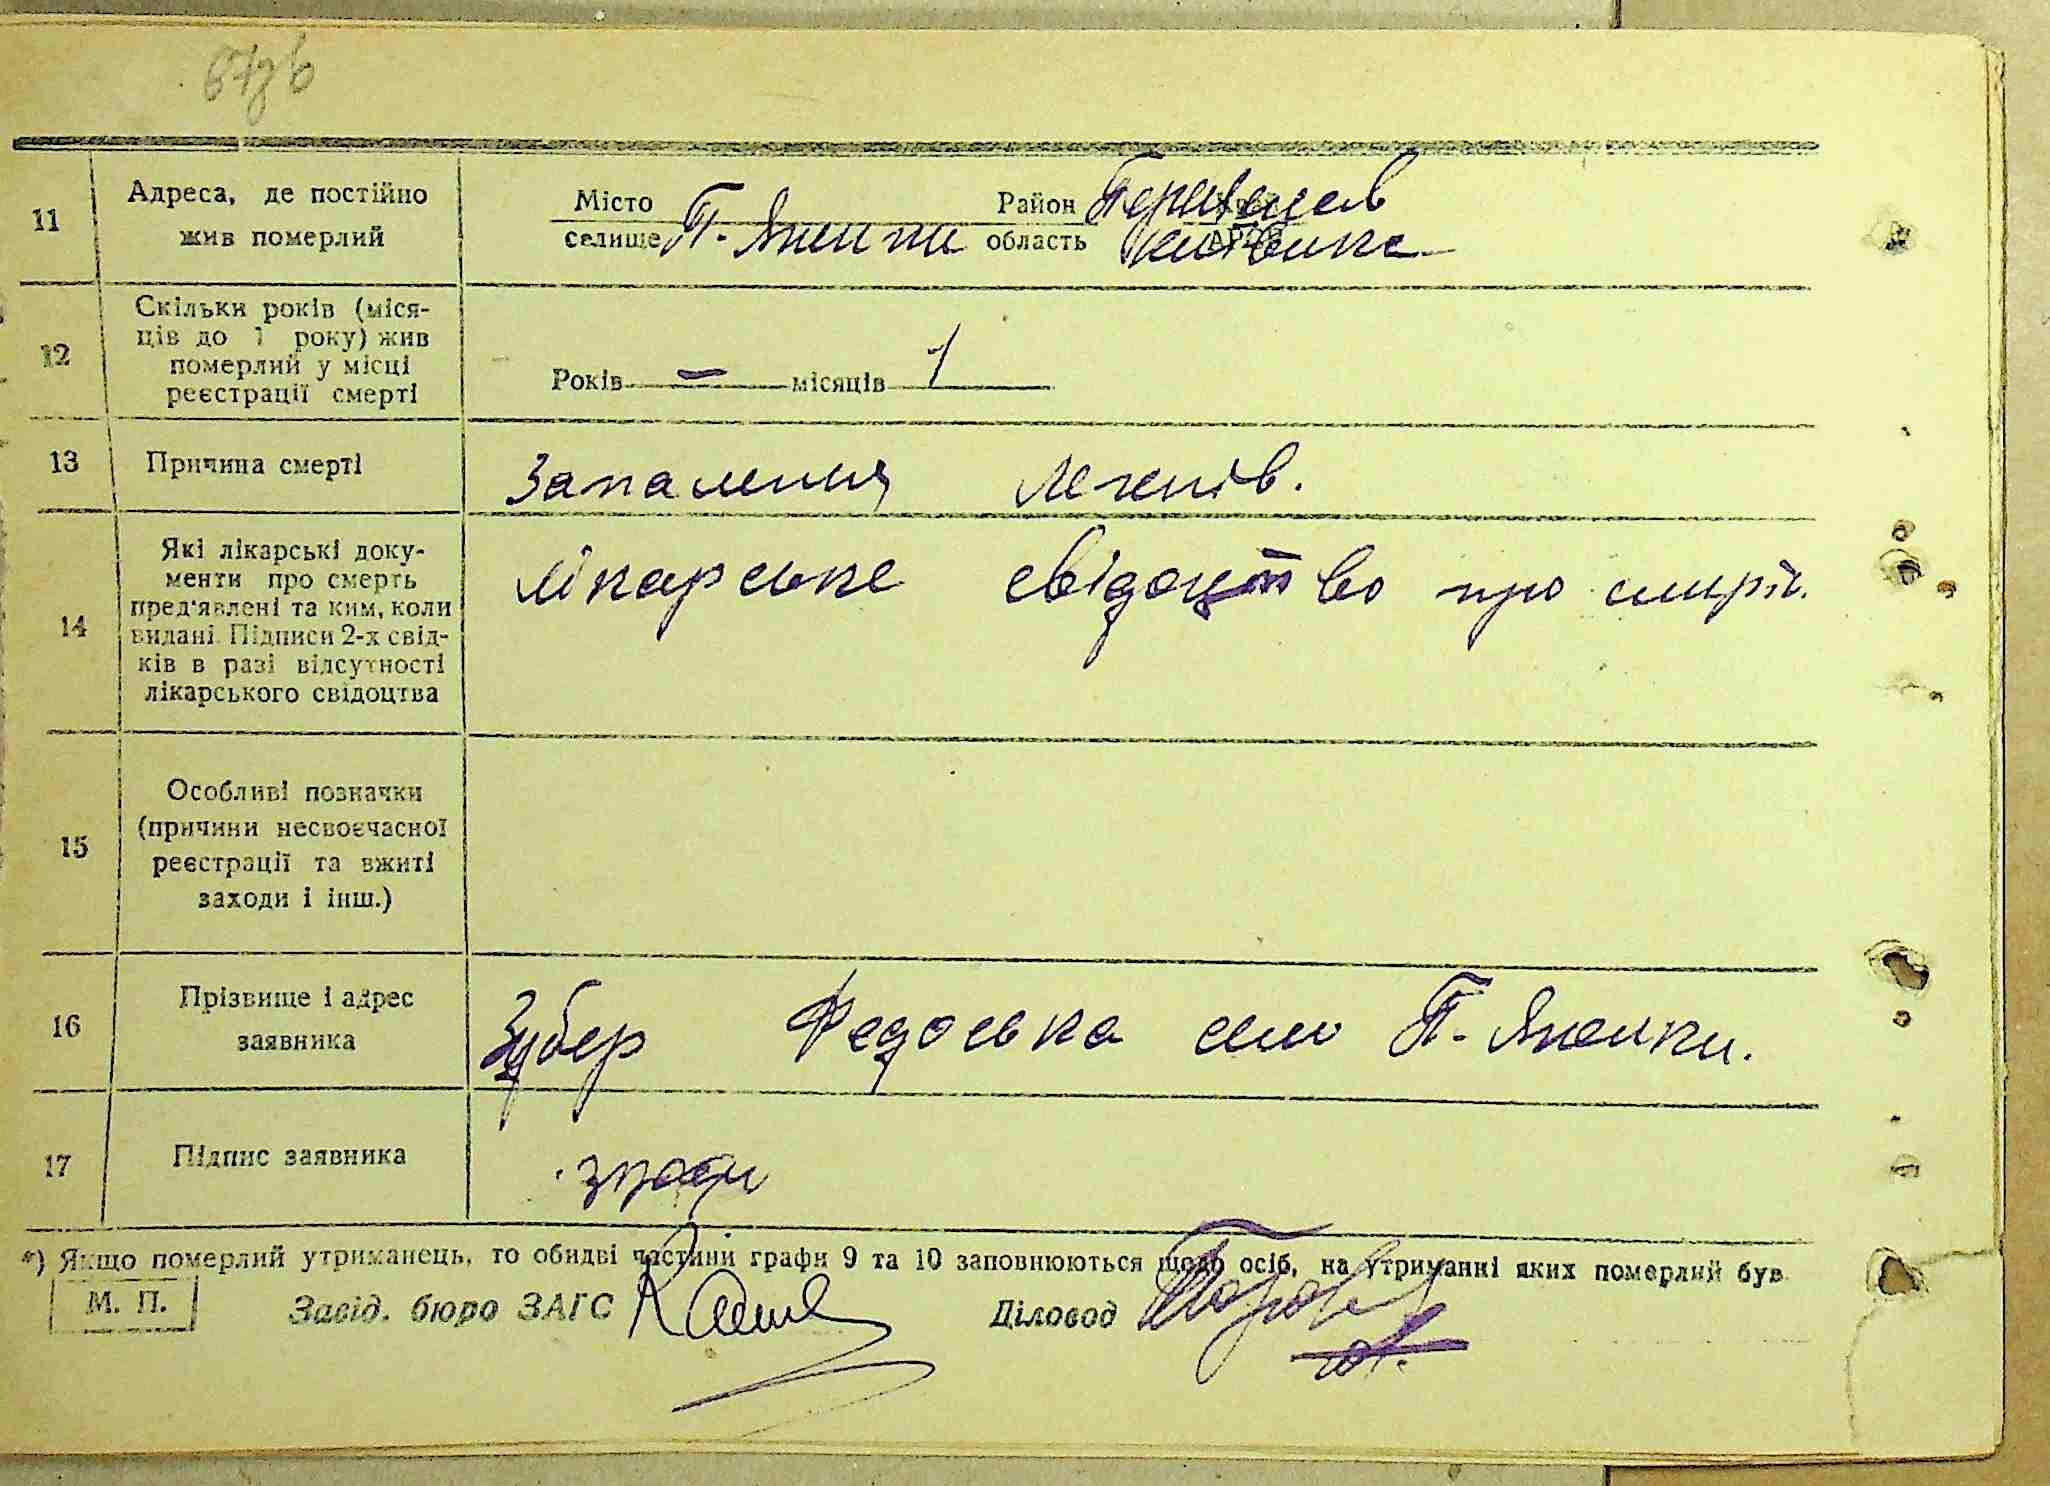 87зв
11
Адреса, де постійно
жив померлий
Місто
селище
П. Яненки
Район
область
Київська
12
Скільки років (міся-
ців до 1 року) жив
померлий у місці
реєстрації смерті
Років — місяців 1
13
Причина смерті
Запалення легенів.
14
Які лікарські доку-
менти про смерть
пред'явлені та ким, коли
видані. Підписи 2-х свід-
ків в разі відсутності
лікарського свідоцтва
лікарське свідоцтво про смирть.
15
Особливі позначки
(причини несвоєчасної
реєстрації та вжиті
заходи і інш.)
16
Прізвище і адрес
заявника
Зубер Федоська село П. Яненки.
17
Підпис заявника
*) Якщо померлий утриманець, то обидві частини графи 9 та 10 заповнюються щодо осіб, на утриманні яких померлий був
М. П.
Завід. бюро ЗАГС
Діловод